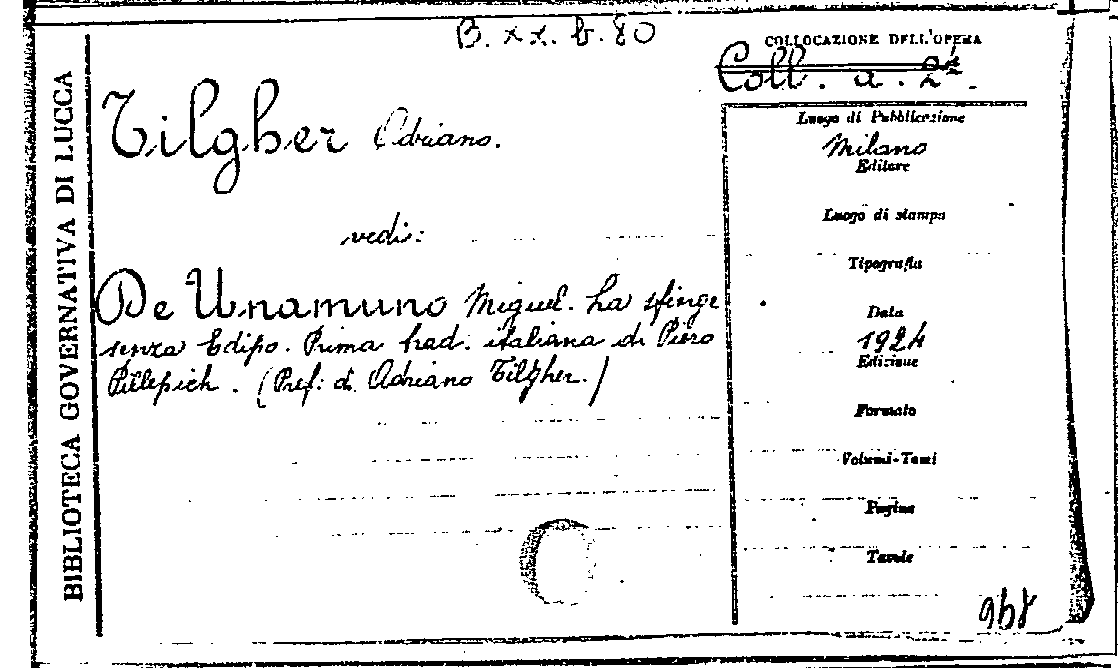 B. xx. b. 80
COLLOCAZIONE DELL'OPERA
Coll. a. 24.
BIBLIOTECA GOVERNATIVA DI LUCCA
Tilgher Adriano.
vedi:
De Unamuno Miguel. La sfinge
senza Edipo. Prima trad. italiana di Piero
Pillepich. (Pref: di Adriano Tilgher.)
Luogo di Pubblicazione
Milano
Editore
Luogo di stampa
Tipografia
Data
1924
Edizione
Formato
Volumi-Tomi
Pagine
Tavole
968